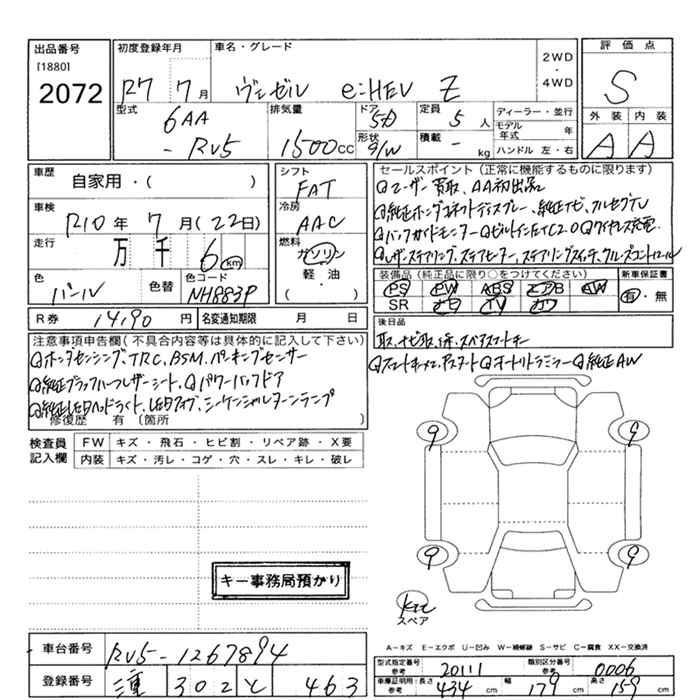 出品番号
[1880]
2072
初度登録年月
R7 7月
車名・グレード
ヴェゼル e:HEV Z
2WD
・
4WD
評価点
S
外装 内装
A A
型式
6AA
- RV5
排気量
1500cc
ドア
5D
形状
S/W
定員
5人
積載
- kg
ディーラー・並行
モデル年式 年
ハンドル 左・右
車歴
自家用・( )
車検
R10年 7月(22日)
走行
万 千 6 km
色
パール
色替
色コード
NH883P
シフト
FAT
冷房
AAC
燃料
ガソリン
軽・油
・( )
R券 14,190円
名変通知期限 月 日
セールスポイント(正常に機能するものに限ります)
◎ユーザー買取、AA初出品
◎純正ホンダコネクトディスプレー、純正ナビ、フルセグTV
◎バックガイドモニター◎ビルトインETC2.0◎ワイヤレス充電
◎レザーステアリング、ステアヒーター、ステアリングスイッチ、クルーズコントロール
装備品(純正品に限り○をつけてください)
PS PW ABS エアB AW
SR ナビ TV カワ
新車保証書
有・無
後日品
取、ナビ取、保、スペアスマートキー
◎スマートキー×2、アドスタート◎オートリトラミラー◎純正AW
注意事項申告欄(不具合内容等は具体的に記入して下さい)
◎ホンダセンシング、TRC、BSM、パーキングセンサー
◎純正ブラックハーフレザーシート、◎パワーバックドア
◎純正LEDヘッドライト、LEDフォグ、シーケンシャルターンランプ
修復歴 有(箇所 )
検査員記入欄
FW キズ・飛石・ヒビ割・リペア跡・X要
内装 キズ・汚レ・コゲ・穴・スレ・キレ・破レ
キー事務局預かり
9 9
9 9
スペア
A−キズ E−エクボ U−凹み W−補修跡 S−サビ C−腐食 XX−交換済
車台番号 RV5-1267894
登録番号 三重 302 と 463
型式指定番号 参考 20111
類別区分番号 参考 0006
車庫証明用 参考 長さ 434cm 幅 179cm 高さ 159cm